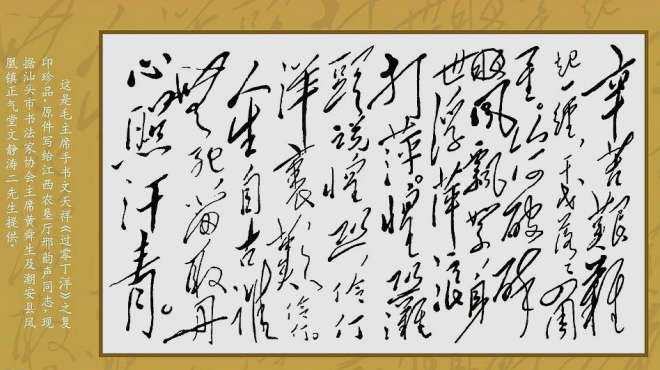 辛苦艱難
起一經，干戈落落四周
星。山河破碎
風飄絮，身
世浮萍浪
打萍。惶恐灘
頭說惶恐，伶仃
洋裏歎伶仃。
人生自古誰
無死，留取丹
心照汗青。
这是毛主席手书文天祥《过零丁洋》之复
印珍品，原件写给江西农垦厅邢韵声同志，现
据汕头市书法家协会主席黄舜生及潮安县凤
凰镇正气堂文静涛二先生提供。